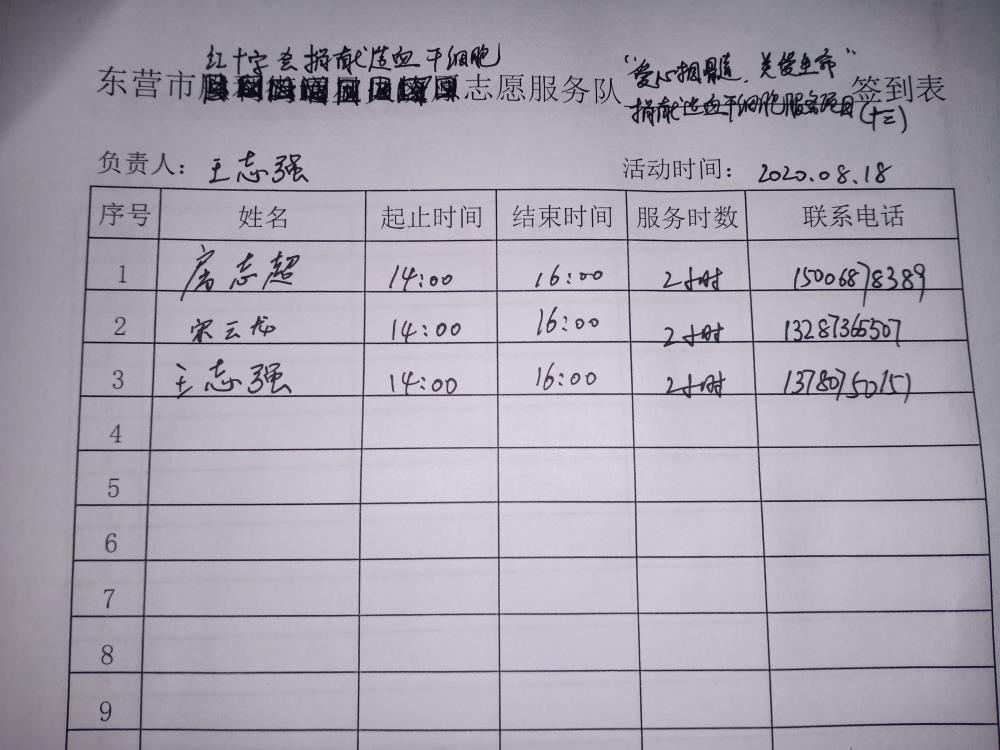 红十字会捐献造血干细胞
东营市志愿服务队 "爱心捐骨髓、关爱生命" 签到表
捐献造血干细胞服务项目(十三)
负责人：王志强 活动时间：2020.08.18
序号 姓名 起止时间 结束时间 服务时数 联系电话
1 房志超 14:00 16:00 2小时 15006878389
2 宋云龙 14:00 16:00 2小时 13287365507
3 王志强 14:00 16:00 2小时 13780750157
4
5
6
7
8
9